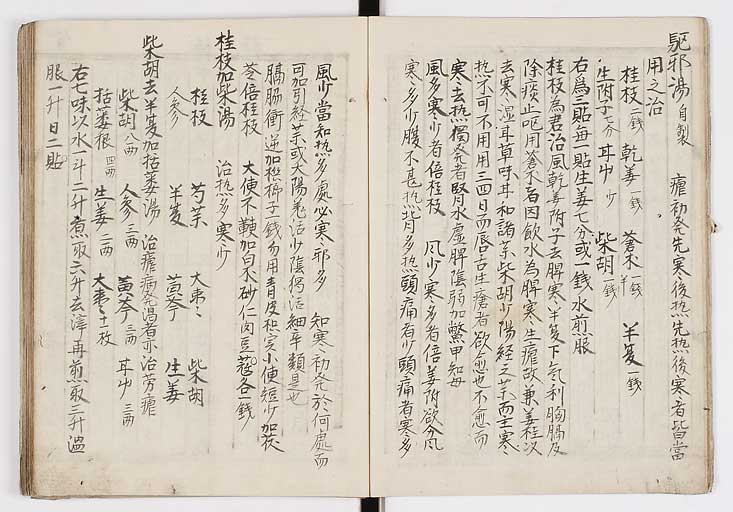 駈邪湯 自製 瘧初発先寒後热先热後寒者皆當
用之治
桂枝 一錢 乾姜 一錢 蒼朮 一錢半 半夏 一錢
生附子 七分 甘艸 少 柴胡 錢
右爲三貼每一貼生姜七分或一錢水煎服
桂枝為君治風乾姜附子去脾寒半夏下気利胸膈及
除痰止呕用蒼朮者因飲水為脾寒生瘧故兼姜桂以
去寒湿耳草味甘和諸薬柴胡少陽経之薬而主寒
热不可不用用三四日而唇舌生瘡者欲愈也不愈而
寒去热獨発者腎水虚脾陰弱加鱉甲知母
風多寒少者倍桂枝 风少寒多者倍姜附欲分风
寒多少腹不甚热背多热頭痛者少頭痛者寒多
風少當知热多處必寒邪多 知寒初発於何處而
可加引経薬或大陽羌活少陰獨活細辛類是也
膈腸衝逆加枳 子錢勿用青皮枳实小便短少加茯
苓倍桂枝 大便不鞕加白朮砂仁肉豆蔲各一錢
桂枝加柴湯 治热多寒少
桂枝 芍薬 大棗 柴胡
人参 半夏 黄芩 生姜
柴胡去半夏加括蔞湯 治瘧病発渇者亦治労瘧
柴胡 八両 人参 三両 黄芩 三両 甘艸 三両
括蔞根 四両 生姜 二両 大棗 十二枚
右七味以水一斗二升煮取六升去滓再煎取三升温
服一升日二貼